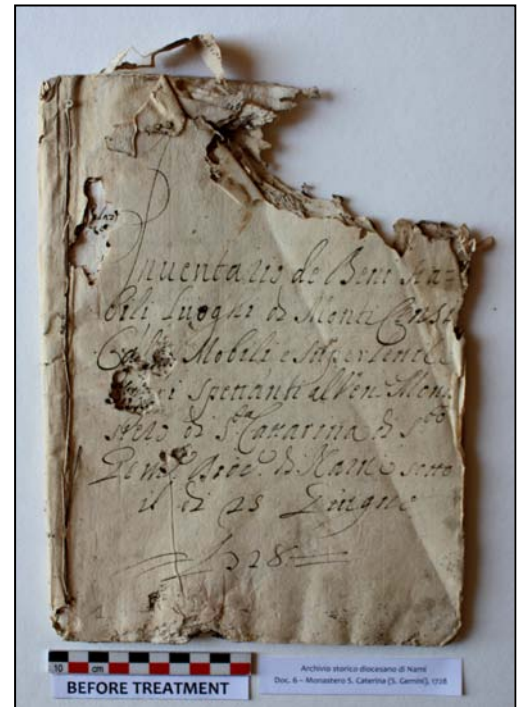 Inventario de Beni Sta=
bili Luoghi di Monti Censi
Mobili e
spettanti al Ven. Mona
stero di S.ta Cattarina di S.to
Gem.e Dioc. di Narni sotto
il dì 28 Giugno
1728
10 cm
BEFORE TREATMENT
Archivio storico diocesano di Narni
Doc. 6 – Monastero S. Caterina (S. Gemini), 1728